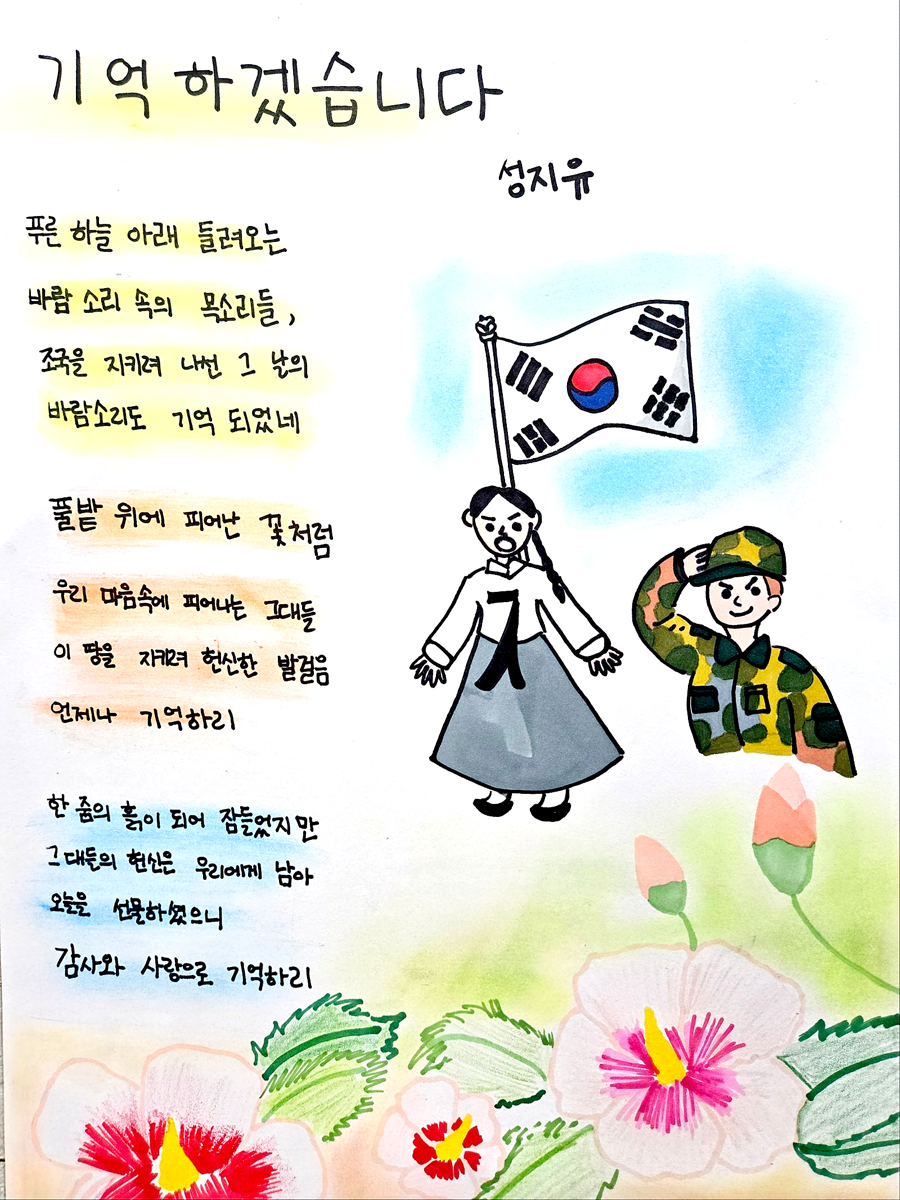 기억하겠습니다
성지유
푸른 하늘 아래 들려오는
바람 소리 속의 목소리들,
조국을 지키려 내선 그 날의
바람소리도 기억 되었네
풀밭 위에 피어난 꽃처럼
우리 마음속에 피어나는 그대들
이 땅을 지키려 헌신한 발걸음
언제나 기억하리
한 줌의 흙이 되어 잠들었지만
그대들의 헌신은 우리에게 남아
오늘을 선물하셨으니
감사와 사랑으로 기억하리